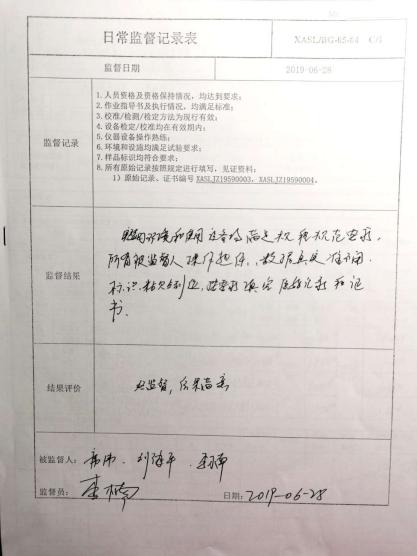 日常监督记录表 XASL/BG-65-04 C/1
监督日期 2019-06-28
监督记录
1.人员资格及资格保持情况，均达到要求；
2.作业指导书及执行情况，均满足标准；
3.校准/检测/检定方法为现行有效；
4.设备检定/校准均在有效期内；
5.仪器设备操作熟练；
6.环境和设施均满足试验要求；
7.样品标识均符合要求；
8.所有原始记录按照规定进行填写，见证资料：
1）原始记录、证书编号 XASLJZ19590003、XASLJZ19590004。
监督结果
环境和使用设备均满足规范要求，
所有被监督人操作，数据真实准确，
标识，按要求填写原始记录和证
书.
结果评价
经监督，结果满意
被监督人：
监督员： 日期：2019-06-28